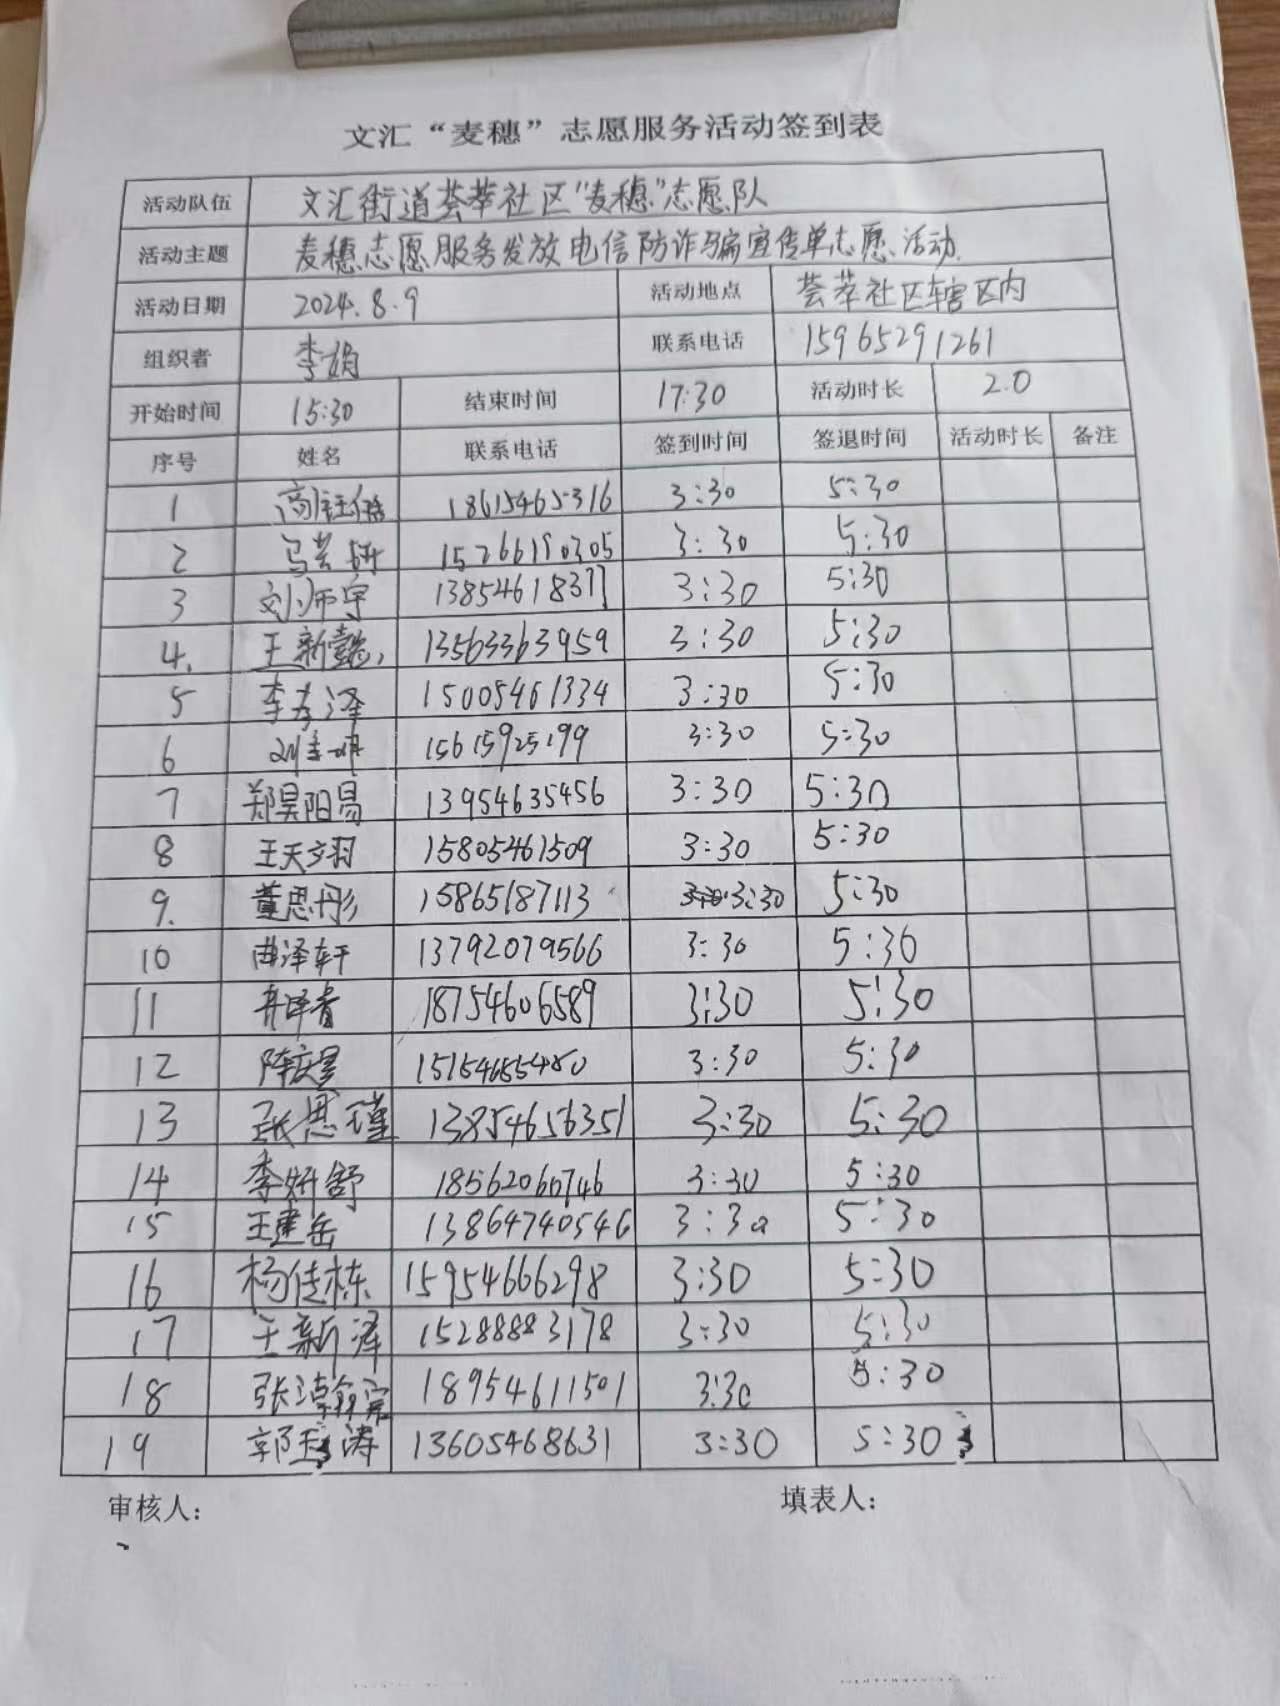 文汇“麦穗”志愿服务活动签到表
活动队伍 文汇街道荟萃社区“麦穗”志愿队
活动主题 麦穗志愿服务发放电信防诈骗宣传单志愿活动.
活动日期 2024.8.9 活动地点 荟萃社区辖区内
组织者 李娟 联系电话 15965291261
开始时间 15:30 结束时间 17:30 活动时长 2.0
序号 姓名 联系电话 签到时间 签退时间 活动时长 备注
1 18615465316 3:30 5:30
2 15266190305 3:30 5:30
3 刘师宇 13854618377 3:30 5:30
4. 王新懿 13563363959 3:30 5:30
5 15005461334 3:30 5:30
6 15615925199 3:30 5:30
7 郑昊阳 13954635456 3:30 5:30
8 王天翊 15805461509 3:30 5:30
9. 董思彤 15865187113 3:30 5:30
10 曲泽轩 13792079566 3:30 5:30
11 18754606589 3:30 5:30
12 15154655480 3:30 5:30
13 张思瑾 13854656351 3:30 5:30
14 李妍舒 18562060746 3:30 5:30
15 王建岳 13864740546 3:30 5:30
16 杨佳栋 15954666298 3:30 5:30
17 王新泽 15288883178 3:30 5:30
18 18954611501 3:30 5:30
19 郭玉涛 13605468631 3:30 5:30
审核人: 填表人: